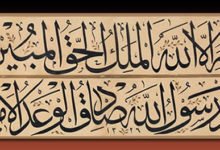 الا الله الملك الحق المبين
رسول الله صادق الوعد الامـ